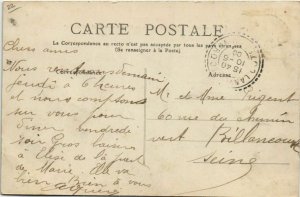 CARTE POSTALE
La Correspondance au recto n'est pas acceptée par tous les pays étrangers
(Se renseigner à la Poste)
Chers amis
Adresse
Nous demain
jeudi à 6 heures
et nous comptons
sur vous pour
vendredi
soir Gros baisers
à Elise de la part
de Marie. elle va
bien
M. et Mme Prigent
60 rue du chemin
vert Billancourt
Seine